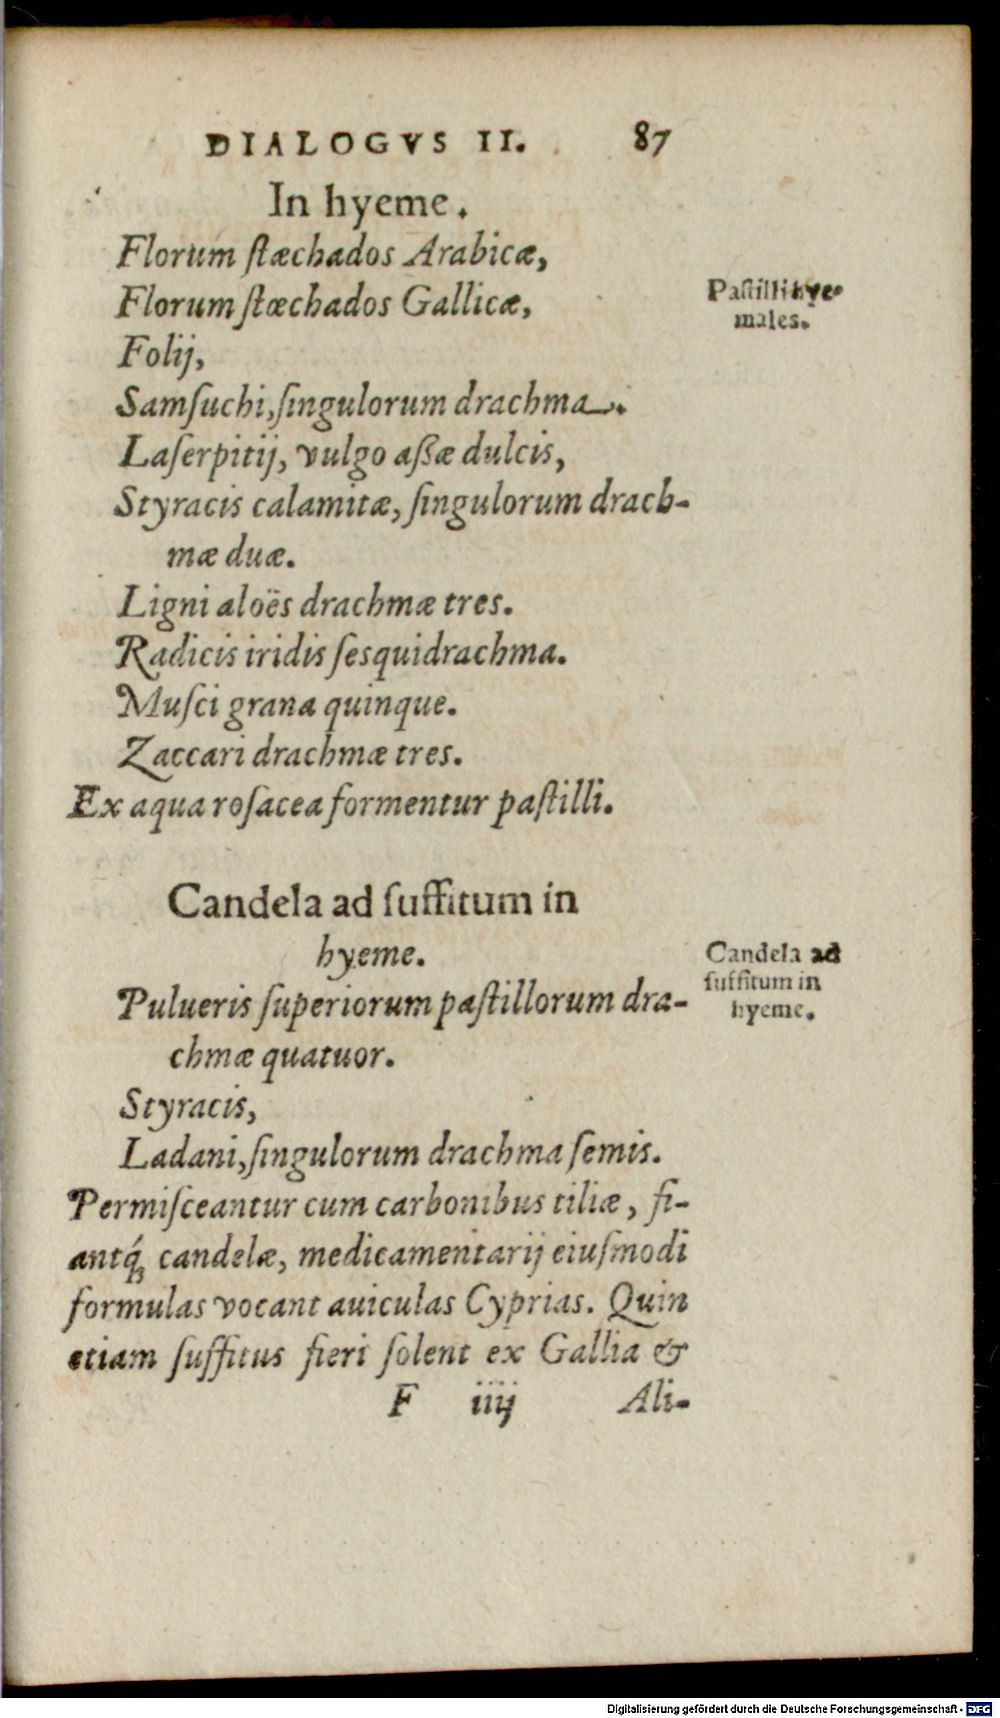 DIALOGVS II. 87
In hyeme.
Florum ſtæchados Arabicæ,
Florum ſtœchados Gallicæ,
Paſtilli hye-
males.
Folij,
Samſuchi, ſingulorum drachma.
Laſerpitij, vulgo aſſæ dulcis,
Styracis calamitæ, ſingulorum drach-
mæ duæ.
Ligni aloës drachmæ tres.
Radicis iridis ſesquidrachma.
Muſci grana quinque.
Zaccari drachmæ tres.
Ex aqua roſacea formentur paſtilli.
Candela ad ſuffitum in
hyeme.
Candela ad
ſuffitum in
hyeme.
Pulueris ſuperiorum paſtillorum dra-
chmæ quatuor.
Styracis,
Ladani, ſingulorum drachma ſemis.
Permiſceantur cum carbonibus tiliæ, fi-
antq́; candelæ, medicamentarij eiuſmodi
formulas vocant auiculas Cyprias. Quin
etiam ſuffitus fieri ſolent ex Gallia &
F iiij Ali-
Digitalisierung gefördert durch die Deutsche Forschungsgemeinschaft - DFG